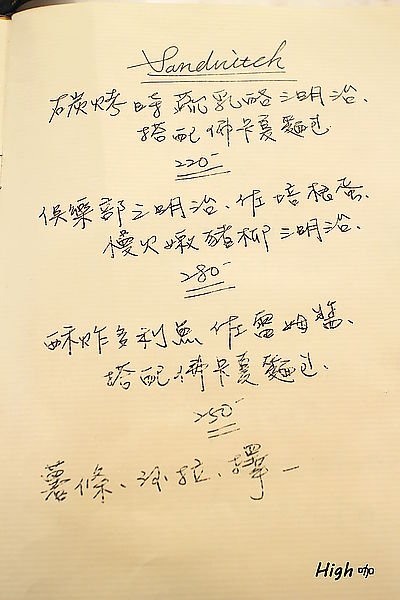 Sandwitch
碳烤時蔬乳酪三明治、
搭配佛卡夏麵包
220-
俱樂部三明治、佐培根蛋、
慢火嫩豬柳三明治、
280-
酥炸多利魚佐雷姆醬、
搭配佛卡夏麵包、
250-
薯條、沙拉、擇一
High 咖